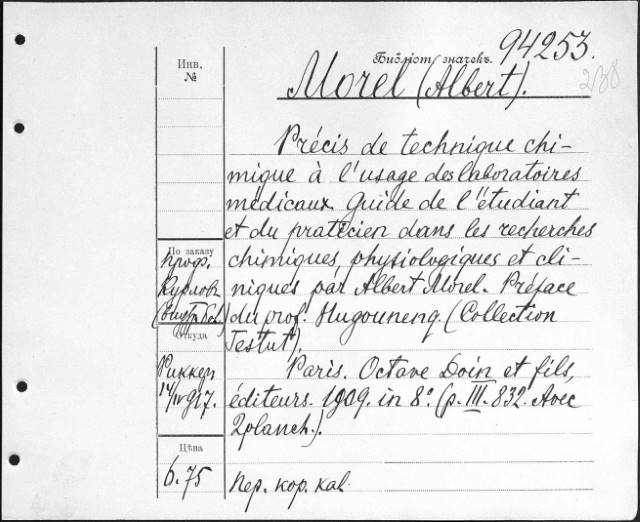 Библіот. значекъ. 94253.
238
Инв.
№
Morel (Albert).
Précis de technique chi-
mique à l'usage des laboratoires
médicaux. Guide de l'étudiant
et du praticien dans les recherches
chimiques, physiologiques et cli-
niques par Albert Morel. Préface
du prof. Hugounenq. (Collection
Testut).
Paris. Octave Doin et fils,
éditeurs. 1909. in 8°. (p. III. 832. Avec
2 planch.).
Пер. кор. кав.
По заказу
проф.
Курловъ
Откуда
Риккер
14/IV 917.
Цѣна
6.75